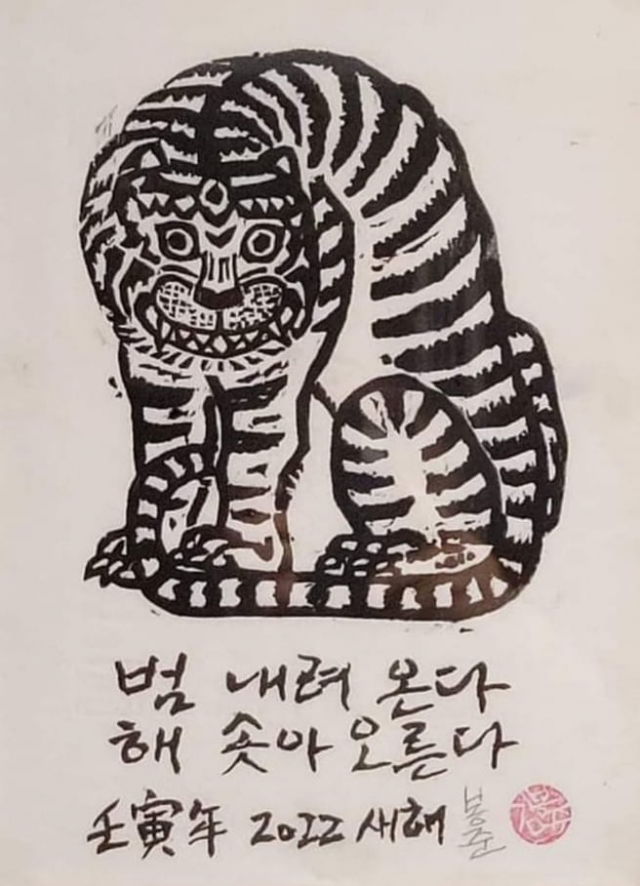 범 내려 온다
해 솟아 오른다
壬寅年 2022 새해 봉준